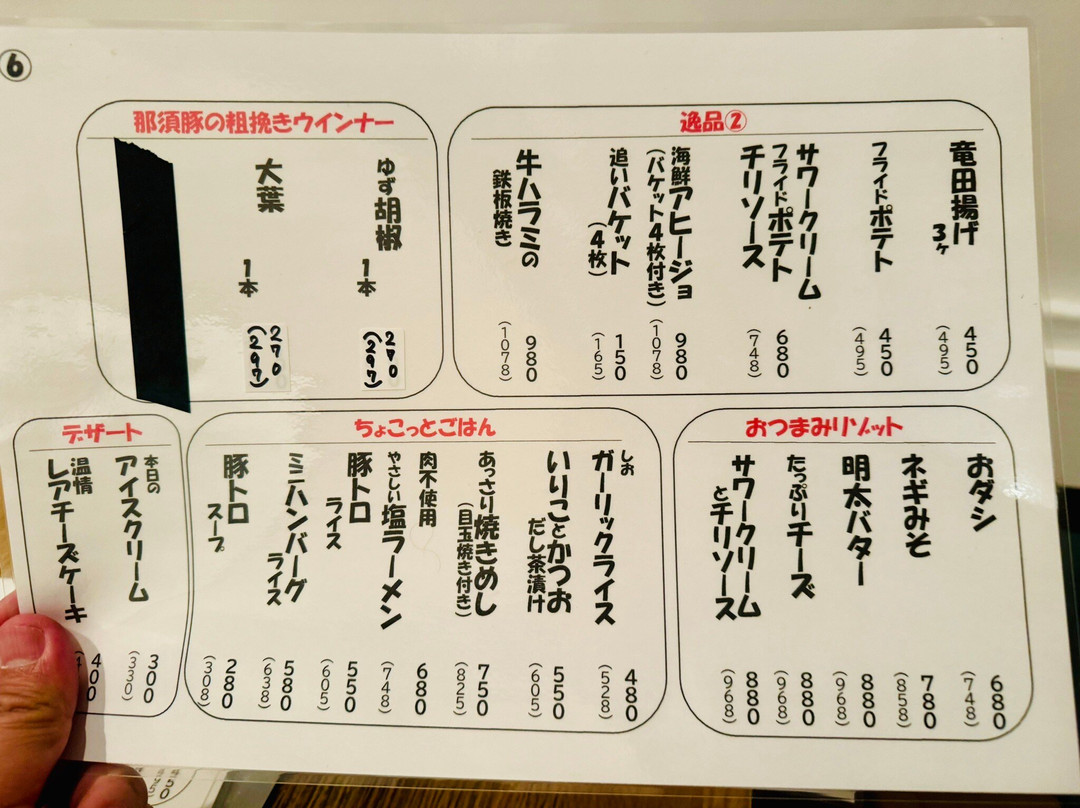 ⑥
逸品②
竜田揚げ
3ヶ
450
(495)
フライドポテト
450
(495)
サワークリーム
フライドポテト
チリソース
680
(748)
海鮮アヒージョ
(バケット4枚付き)
980
(1078)
追いバケット
(4枚)
150
(165)
牛ハラミの
鉄板焼き
980
(1078)
那須豚の粗挽きウインナー
ゆず胡椒
1本
270
(297)
大葉
1本
270
(297)
おつまみリゾット
おダシ
680
(748)
ネギみそ
780
(858)
明太バター
880
(968)
たっぷりチーズ
880
(968)
サワークリーム
とチリソース
880
(968)
ちょこっとごはん
しお
ガーリックライス
480
(528)
いりことかつお
だし茶漬け
550
(605)
あっさり焼きめし
(目玉焼き付き)
750
(825)
肉不使用
やさしい塩ラーメン
680
(748)
豚トロ
ライス
550
(605)
ミニハンバーグ
ライス
580
(638)
豚トロ
スープ
280
(308)
デザート
本日の
アイスクリーム
300
(330)
温情
レアチーズケーキ
400